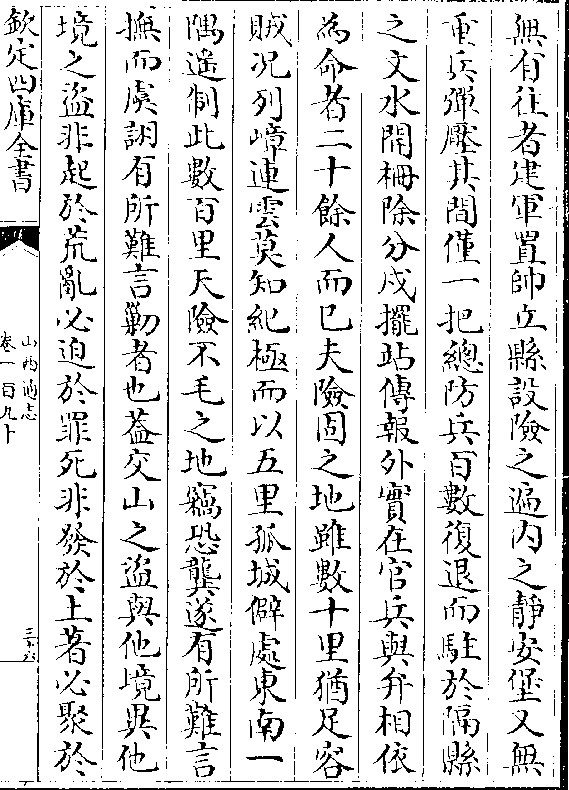 無有往者建軍置帥立縣設險之遍内之靜安堡又無
重兵彈壓其間僅一把總防兵百數復退而駐於隔縣
之文水開柵除分戍擺站傳報外實在官兵與弁相依
為命者二十餘人而已夫險固之地雖數十里猶足容
賊况列嶂連雲莫知紀極而以五里孤城僻處東南一
隅遥制此數百里天險不毛之地竊恐龔遂有所難言
撫而虞詡有所難言勦者也葢交山之盜與他境異他
境之盜非起於荒亂必迫於罪死非發於土著必聚於
欽定四庫全書
山西通志
卷一百九十